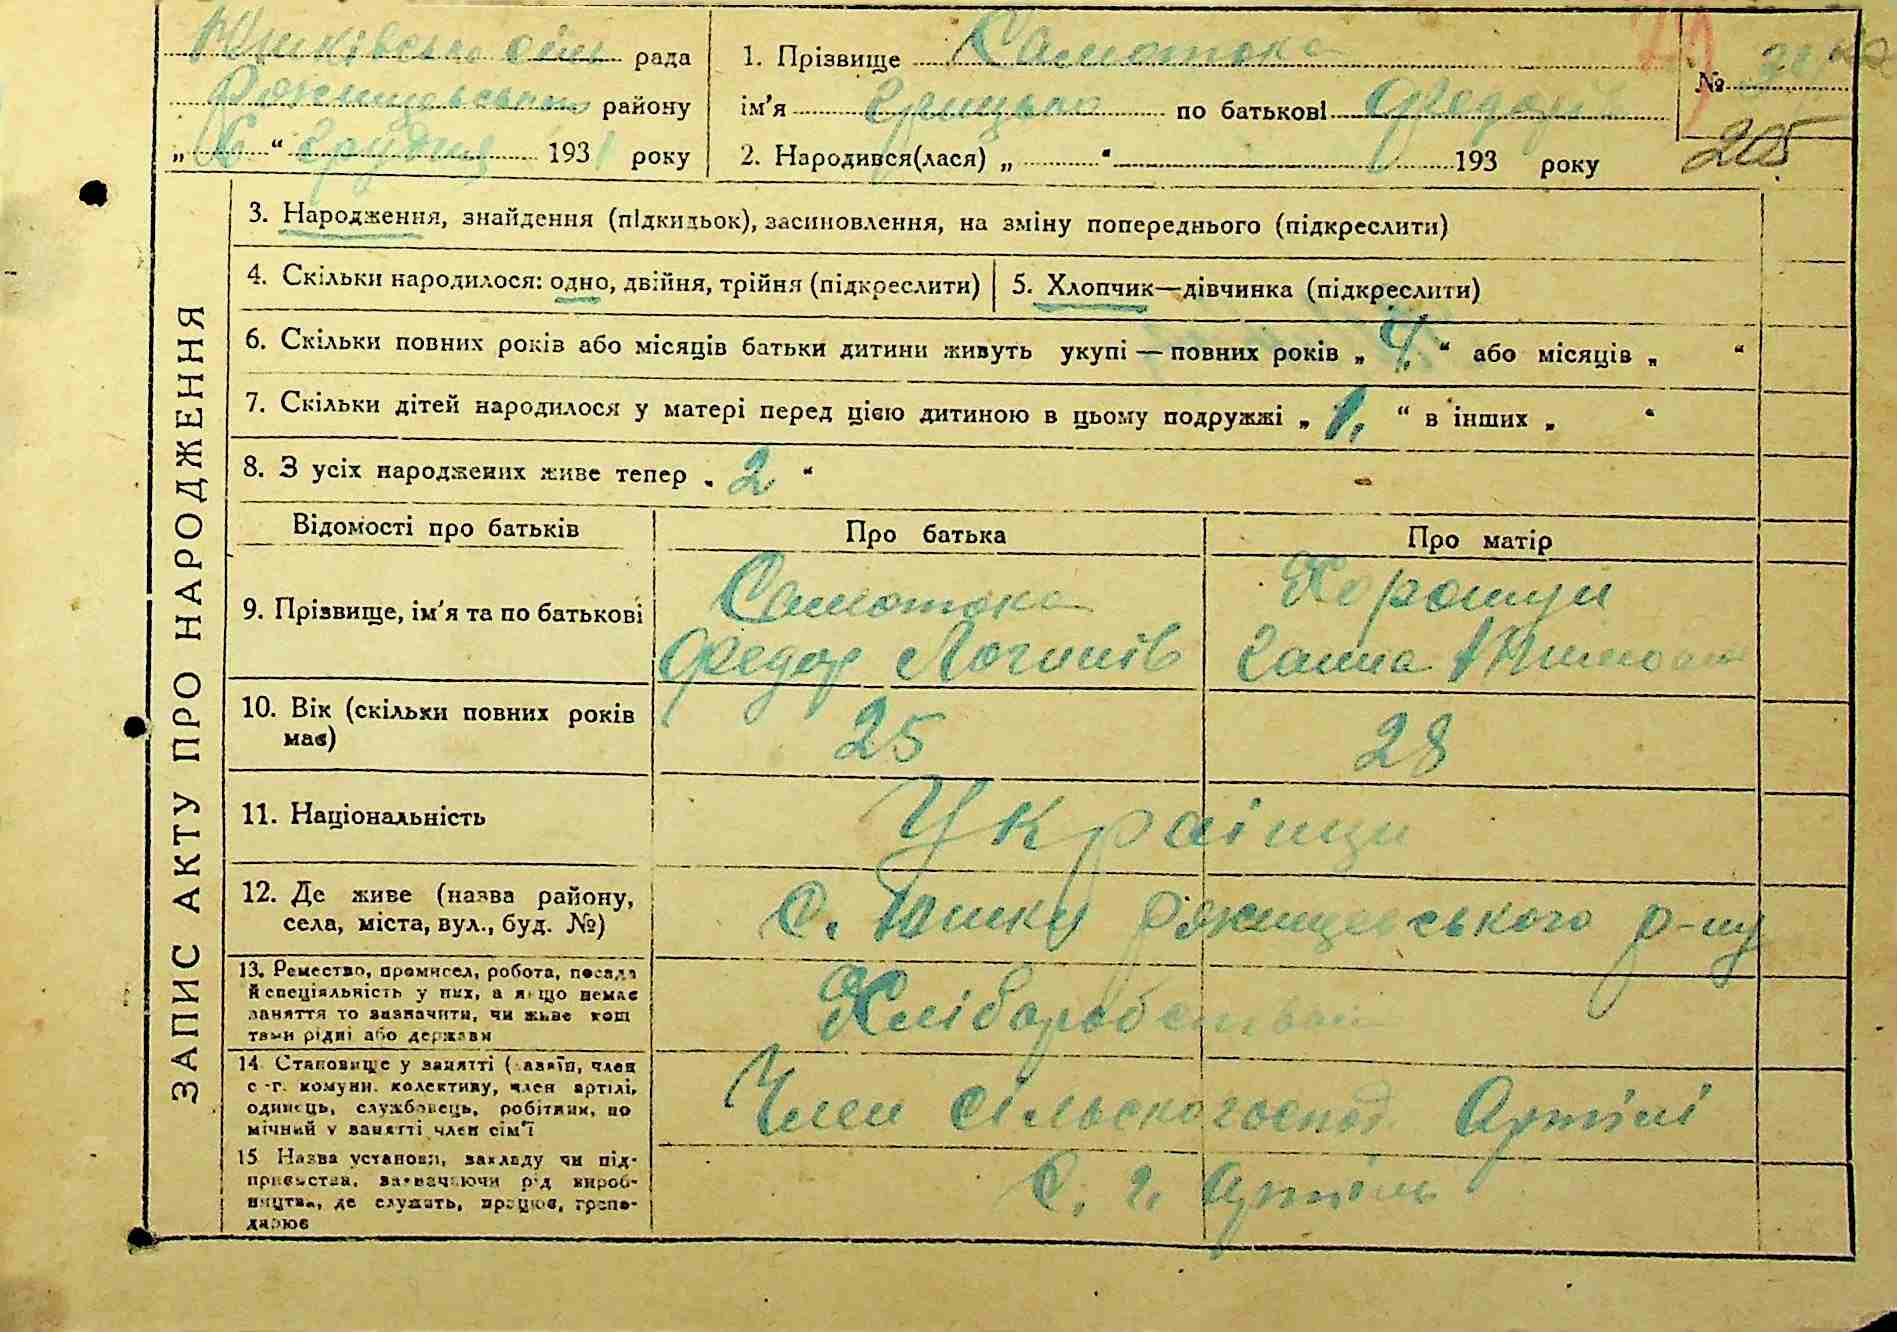 Юшківська сіль рада
Ржищевського району
„ 6 “ грудня 1931 року
1. Прізвище Самотока
ім'я Грицько по батькові Федорів
2. Народився(лася) „ “ 193 року
№
205
ЗАПИС АКТУ ПРО НАРОДЖЕННЯ
3. Народження, знайдення (підкидьок), засиновлення, на зміну попереднього (підкреслити)
4. Скільки народилося: одно, двійня, трійня (підкреслити) 5. Хлопчик—дівчинка (підкреслити)
6. Скільки повних років або місяців батьки дитини живуть укупі — повних років „ 4. “ або місяців „ “
7. Скільки дітей народилося у матері перед цією дитиною в цьому подружжі „ 1. “ в інших „ “
8. З усіх народжених живе тепер „ 2 “
Відомості про батьків Про батька Про матір
9. Прізвище, ім'я та по батькові
Самотока
Федор Логинів
Хорошун
Ганна
10. Вік (скільки повних років
має)
25 28
11. Національність Українці
12. Де живе (назва району,
села, міста, вул., буд. №)
с. Юшки Ржищевського р-ну
13. Ремество, промисел, робота, посада
й спеціяльність у них, а якщо немає
заняття то зазначити, чи живе кош
тами рідні або держави
Хліборобством
14. Становище у занятті (хазяїн, член
с.-г. комуни, колективу, член артілі,
одинець, службовець, робітник, по
мічний у занятті член сім'ї
Член сільскогоспод. Артілі
15 Назва установи, закладу чи під-
приємства, зазначаючи рід вироб-
ництва, де служить, працює, госпо-
дарює
С. г. Артіль